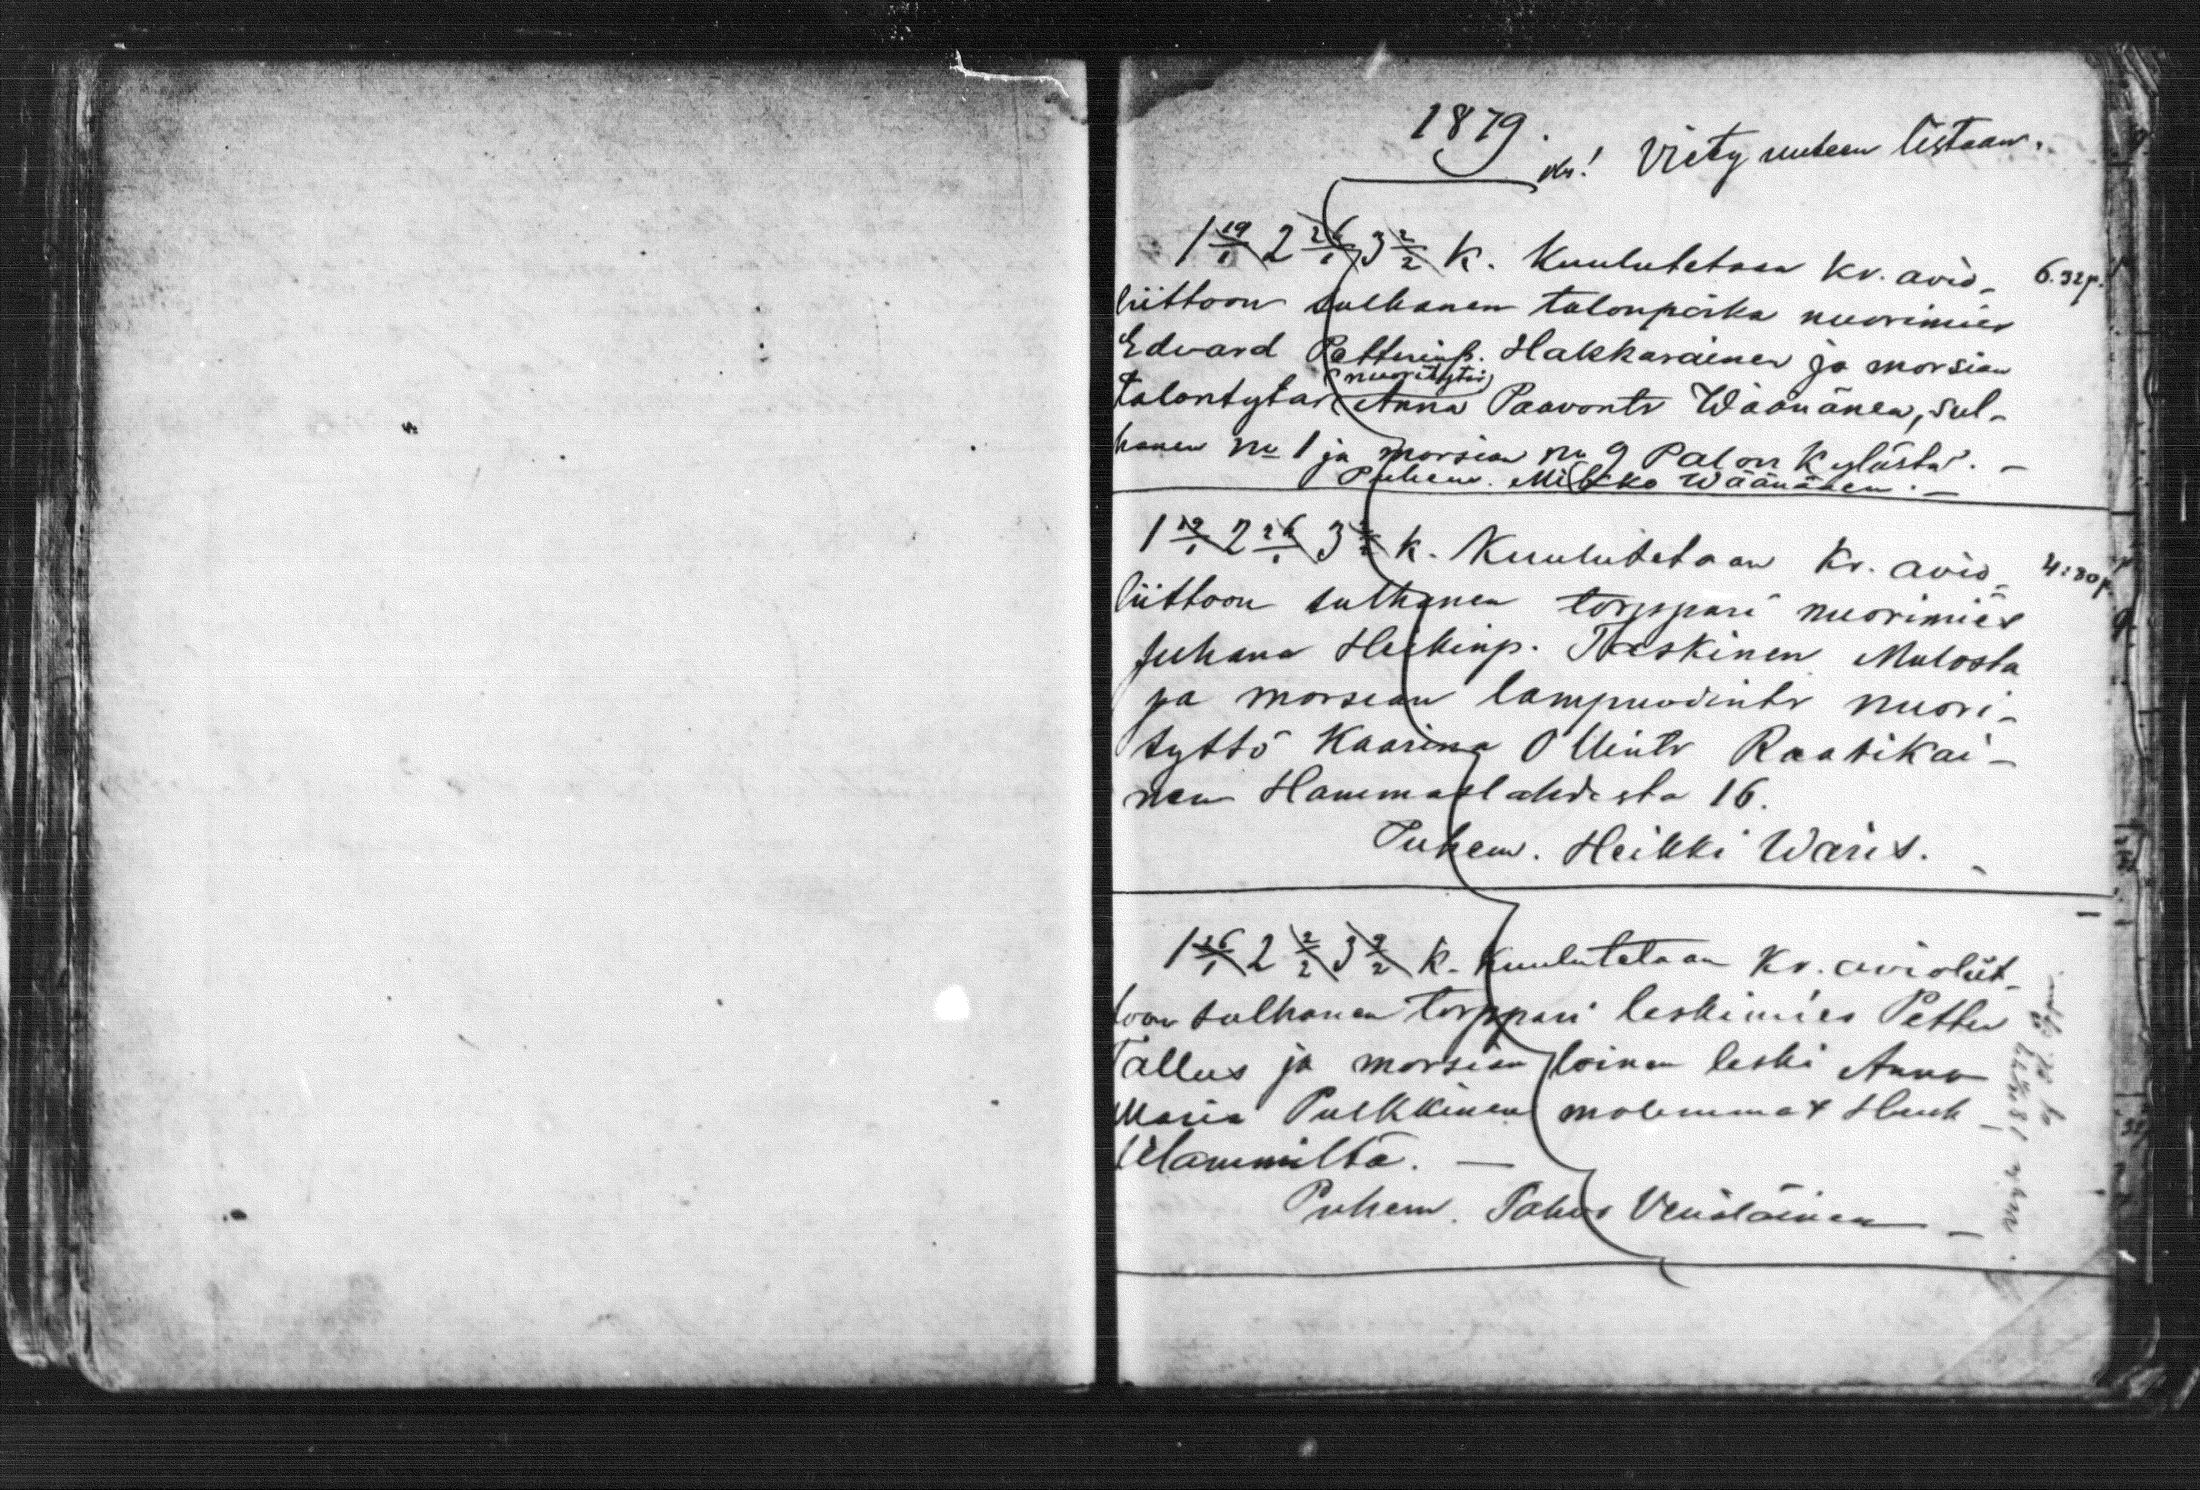 1879.
Viety uuteen listaan.
1 19/1 2 26/1 3 2/2 k. Kuulutetaan Kr. avio-
6.32p.
liittoon sulhanen talonpoika nuorimies
Edvard Petterinp. Hakkarainen ja morsian
(nuorityttö)
talontytär Anna Paavontr Wäänänen, sul-
hanen No 1 ja morsian No 9 Palon Kylästä. —
Puhem. Mikko Wäänänen. —
1 19/1 2 26/1 3 2/2 k. Kuulutetaan Kr. avio-
4:80p.
liittoon sulhanen torppari nuorimies
Juhana Heikinp. Taskinen Mulosta
ja morsian lampuodintr nuori-
tyttö Kaarina Ollintr Raatikai-
nen Hammaslahdesta 16.
Puhem. Heikki Waris.
1 26/1 2 2/2 3 9/2 k. Kuulutetaan Kr. avioliit-
toon sulhanen torppari leskimies Petter
Tallus ja morsian loinen leski Anna
Maria Pulkkinen molemmat
Puhem. Venäläinen —